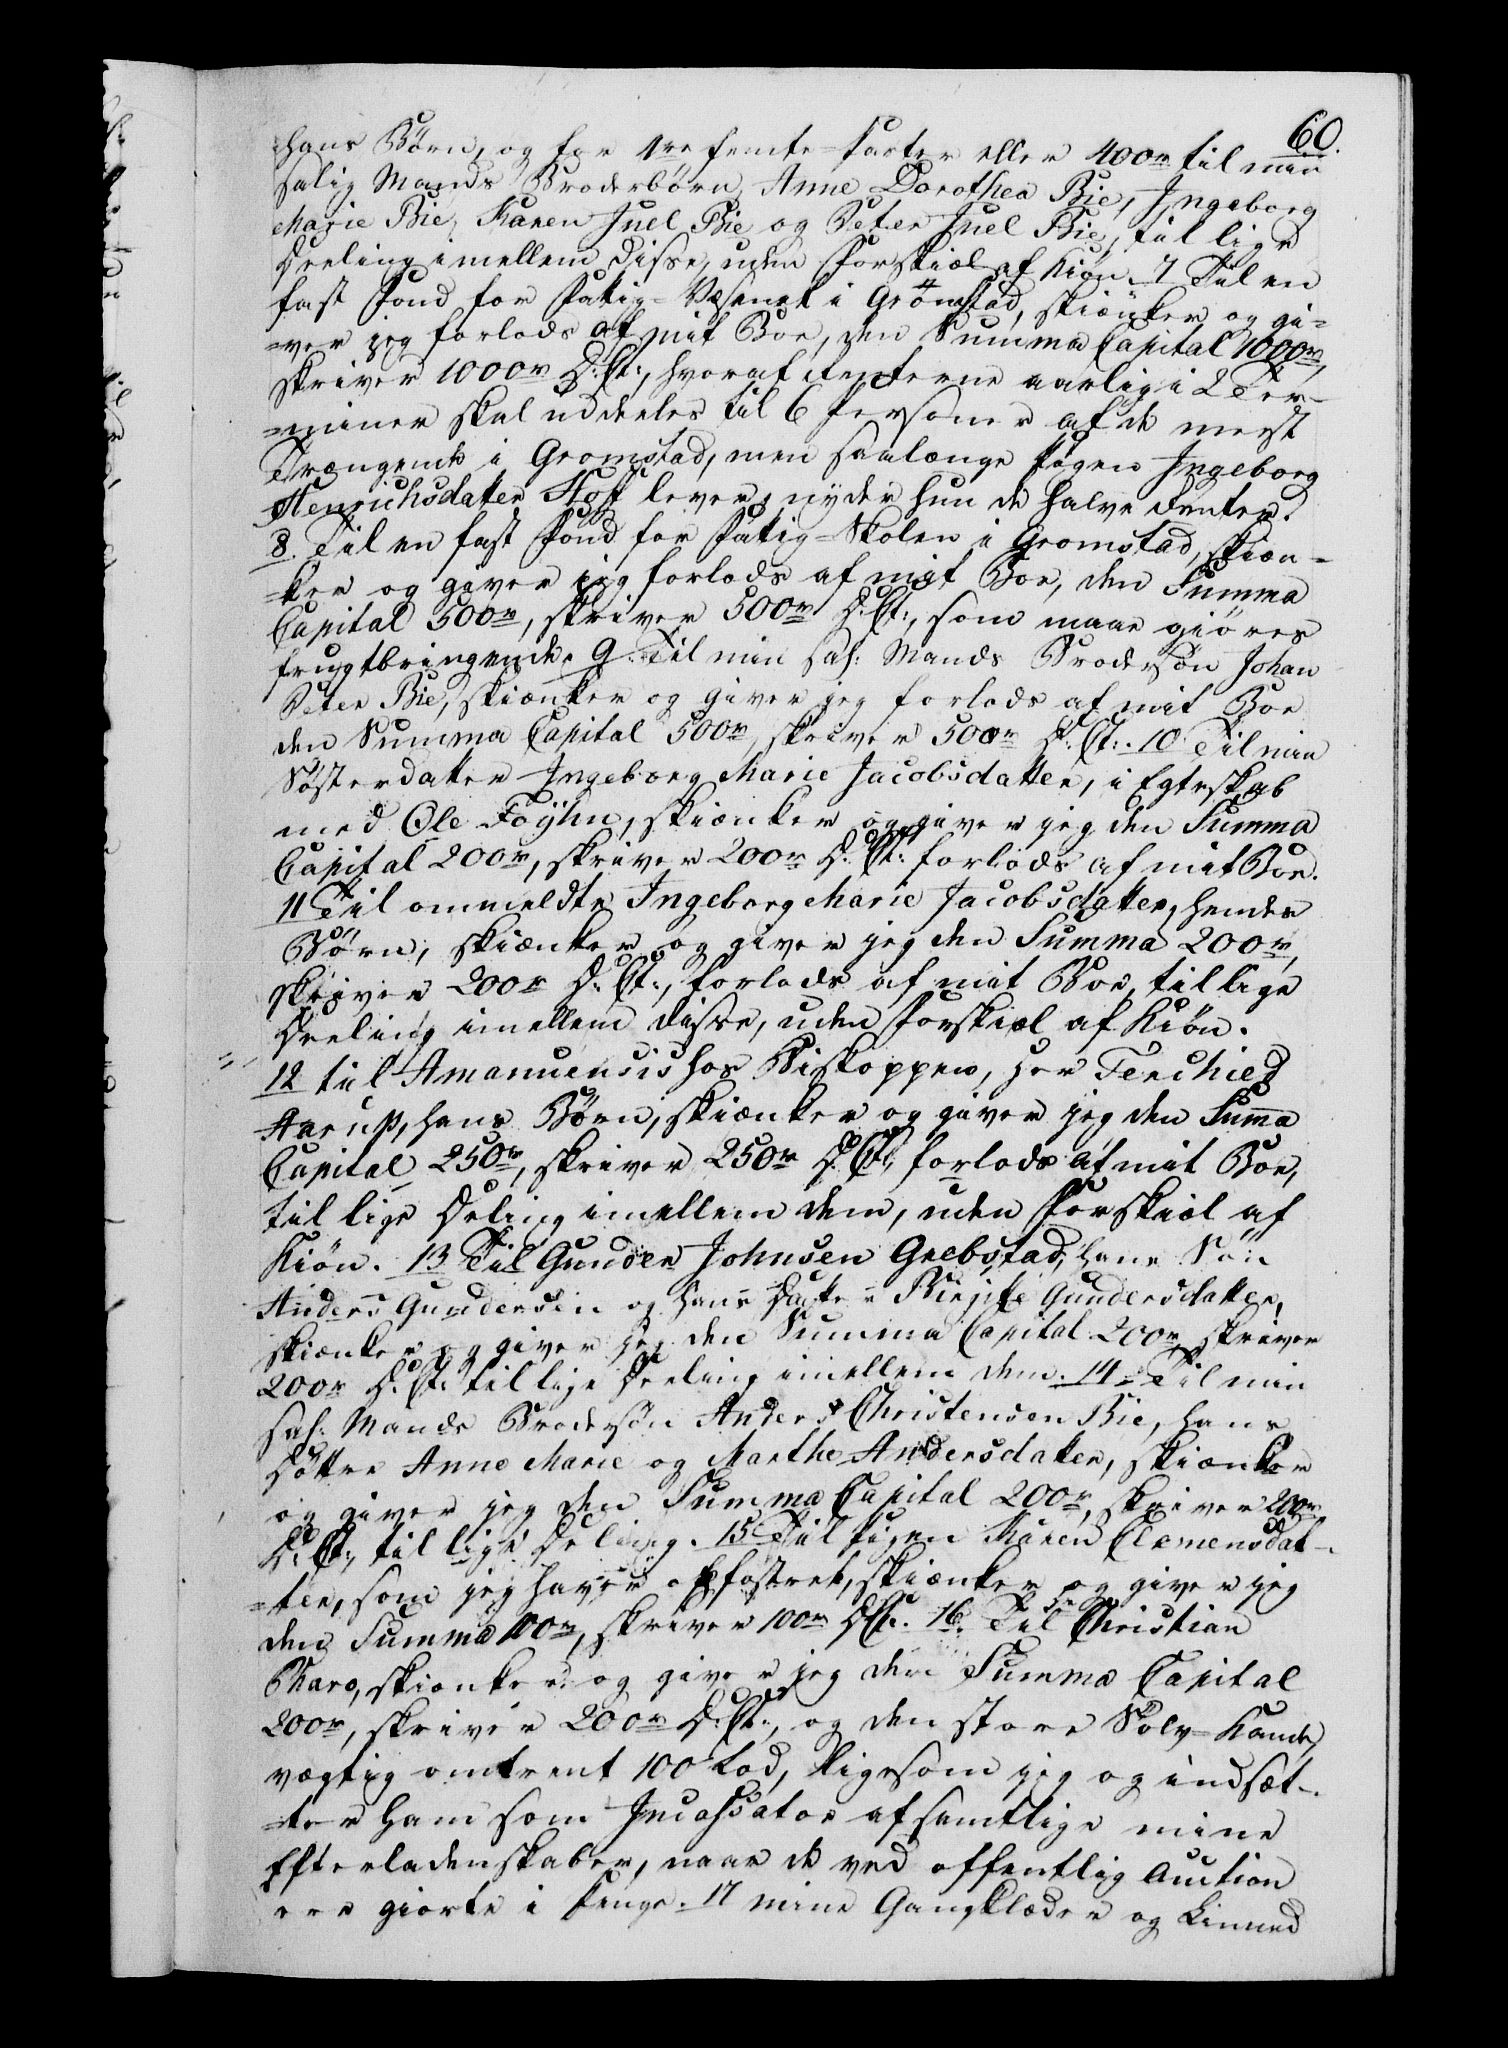 60.
hans Börn, og for 4re femte-Parter eller 400r til min
salig Mands Broderbörn, Anne Dorothea Bie, Ingeborg
Marie Bie, Karen Juel Bie og Peter Juel Bie, til lige
Deeling imellem disse, uden Forskiæl af Kiön. 7 Til en
fast Fond for Fattig-Væsenet i Grömstad, skiænker og gi-
-ver jeg forlods af mit Boe, den Summa Capital 1000r,
skriver 1000r D: Ct:, hvoraf Renterne aarlig i 2 Ter-
-miner skal uddeeles til 6 Personer af de meest
Trængende i Gromstad, men saalænge Pigen Ingeborg
Henrichsdatter Hoff lever, nyder hun de halve Renter.
8. Til en fast Fond for Fattig-Skolen i Gromstad, skiæn-
-ker og giver jeg forlods af mit Boe, den Summa
Capital 500r, skriver 500r D: Ct:, som maae giöres
frugtbringende. 9. Til min sal: Mands Brodersön Johan
Peter Bie, skiænker og giver jeg forlods af mit Boe
den Summa Capital 500r, skriver 500r D: Ct:. 10 Til min
Sösterdatter Ingeborg Marie Jacobsdatter, i Egteskab
med Ole Föyhn, skiænker og giver jeg den Summa
Capital 200r, skriver 200r D: Ct: forlods af mit Boe.
11 Til ommeldte Ingeborg Marie Jacobsdatter, hendes
Börn, skiænker og giver jeg den Summa 200r,
skriver 200r D: Ct:, forlods af mit Boe, til lige
Deeling imellem disse, uden Forskiæl af Kiön.
12 til Amanuensis hos Biskoppen, Her Terchied
Aarup, hans Börn, skiænker og giver jeg den Summa
Capital 250r, skriver 250r D. Ct, forlods af mit Boe,
til lige Deling imellem dem, uden Forskiæl af
Kiön. 13 Til Gunder Johnsen Grebstad, hans Sön
Anders Gundersen og hans Datter Birgitte Gundersdatter,
skiænker og giver jeg den Summa Capital 200r, skriver
200r D. Ct: til lige Deeling imellem dem. 14 Til min
sal: Mands Brodersön Anders Christensen Bie, hans
Döttre Anne Marie og Marthe Andersdatter, skiænker
og giver jeg den Summa Capital 200r, skriver 200r
D: Ct:, til lige Deling. 15 Til Pigen Karen Clemensdat-
-ter, som jeg haver opfostret, skiænker og giver jeg
den Summa 100r, skriver 100r D Ct:. 16. Til Hr Christian
Bharo, skiænker og giver jeg den Summa Capital
200r, skriver 200r D. Ct:, og den store Sölv-Kande,
vægtig omtrent 100 Lod, ligesom jeg og indsæt-
-ter ham som Incassator af samtlige mine
Efterladenskaber, naar de ved offentlig Auction
ere giorte i Penge. 17 mine Gangklæder og Linned